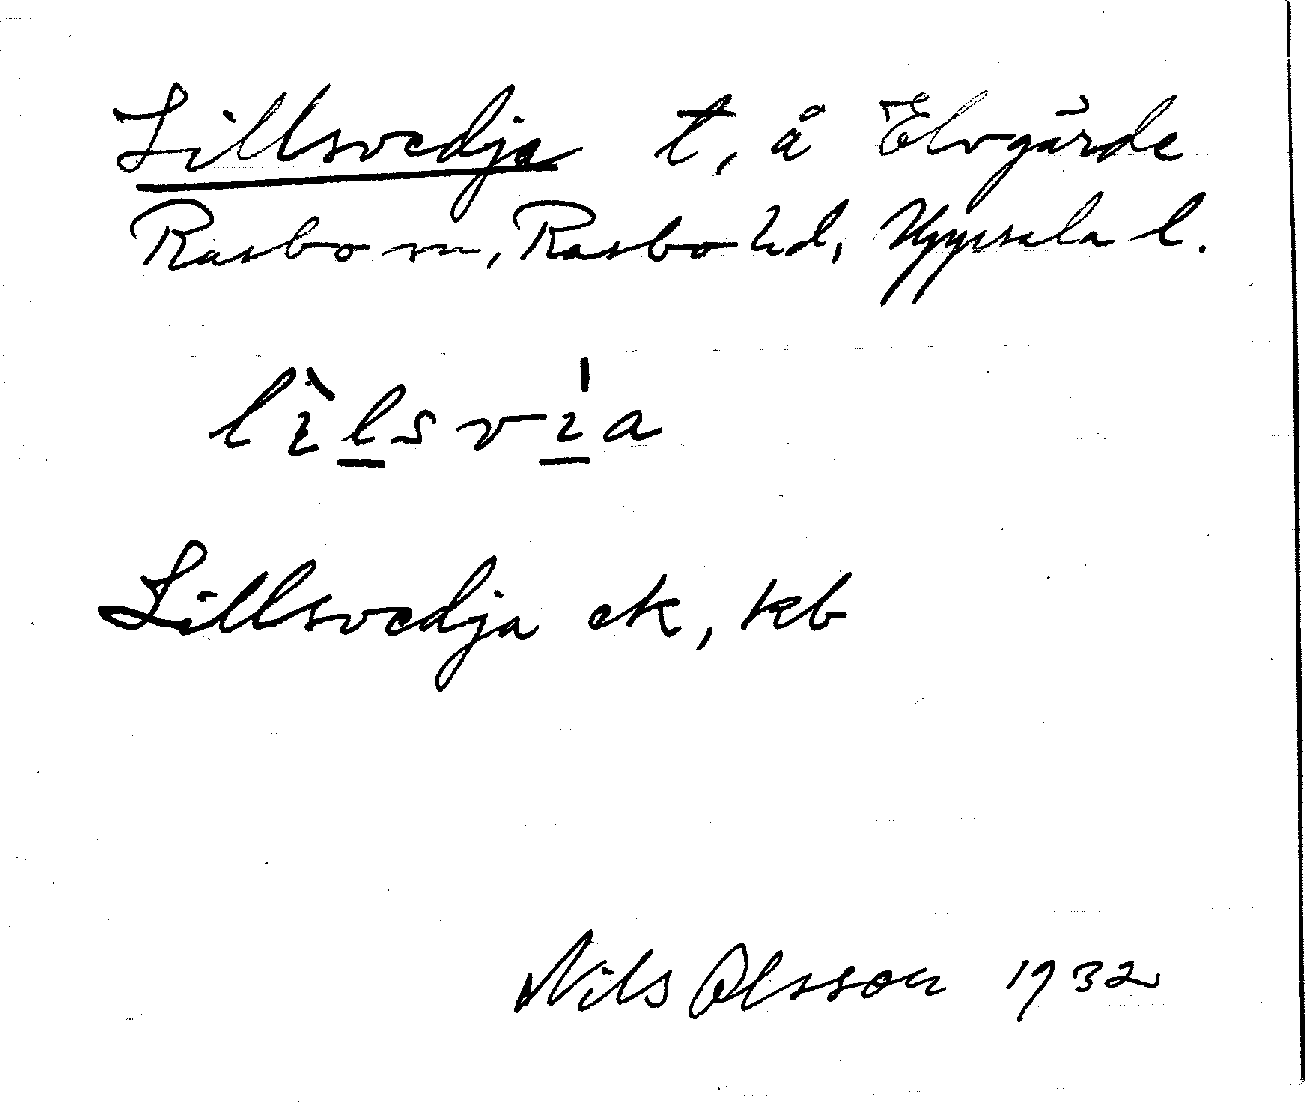 Lillsvedja t, å Elvgärde
Rasbo sn, Rasbo hd, Uppsala l.
lìlsvi̍a
Lillsvedja ek, kb
Nils Olsson 1932